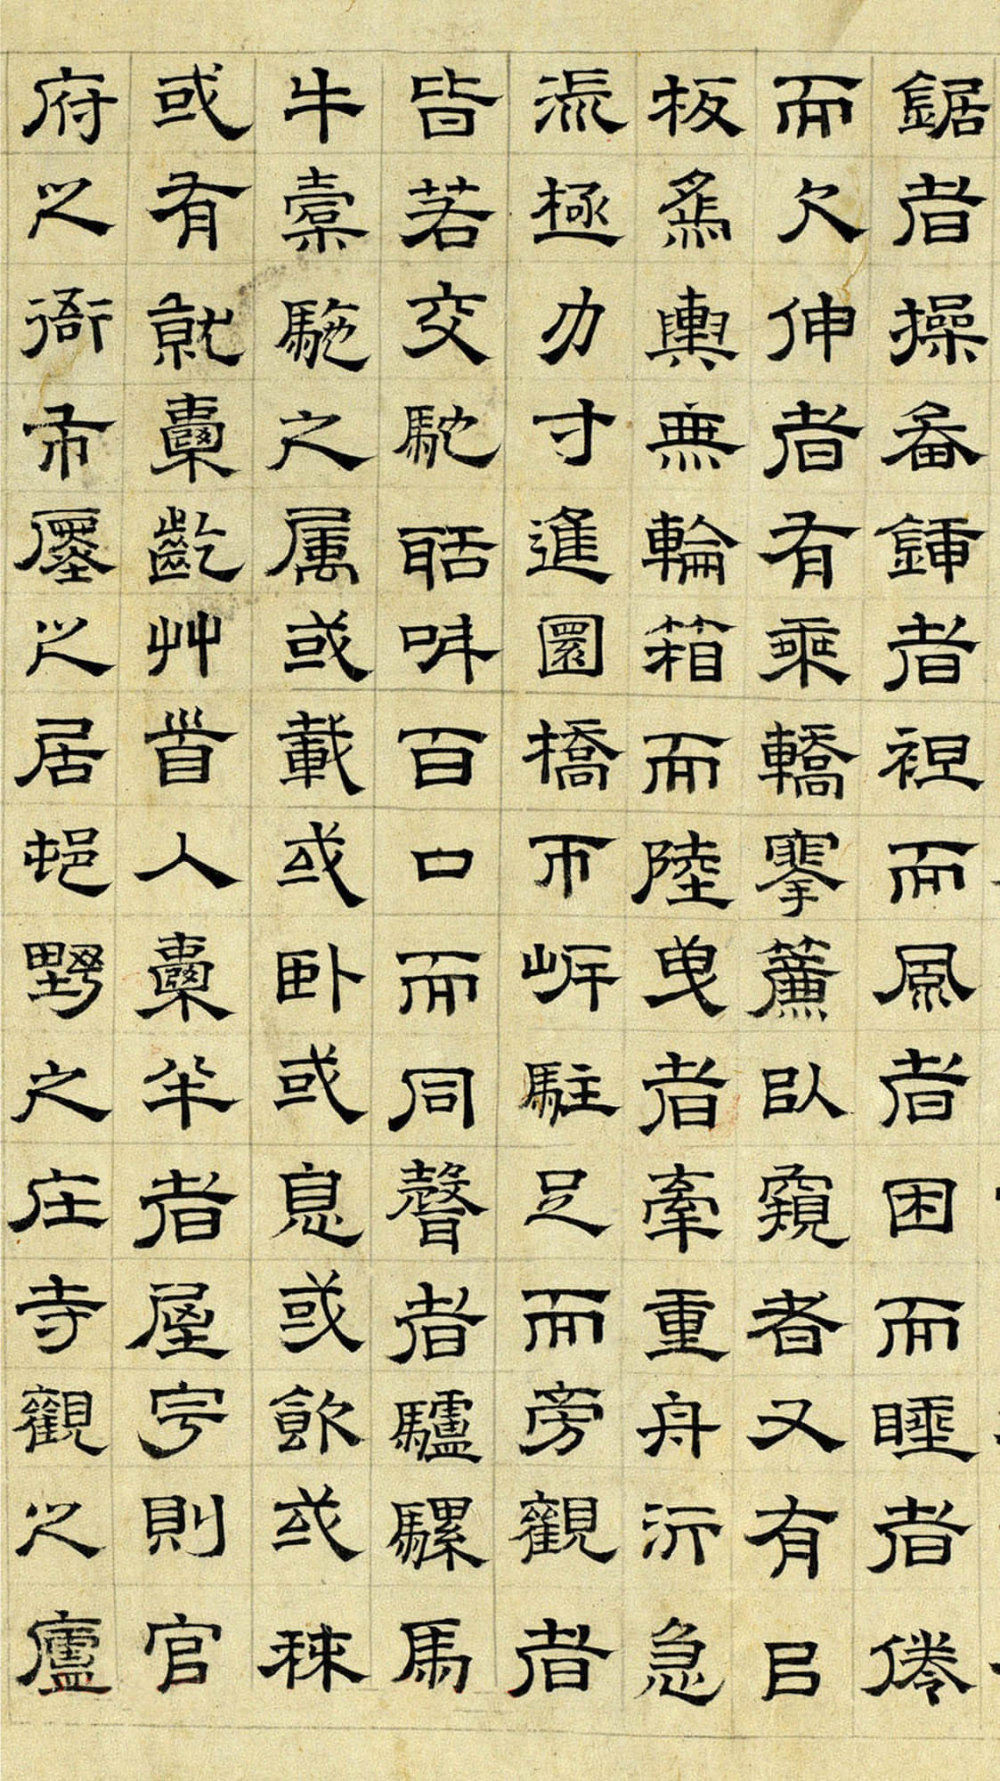 鋸者操畚鍤者袒而風者困而睡者倦
而欠伸者有乘轎搴簾臥窺者又有以
板為輿無輪箱而陸曳者牽重舟泝急
流極力寸進圜橋匝岸駐足而旁觀者
皆若交馳聒呌百口而同聲者驢騾馬
牛橐駞之属或載或卧或息或飲或秣
或有就囊齕艸首入囊半者屋宇則官
府之衙市廛之居邨野之庄寺觀之廬